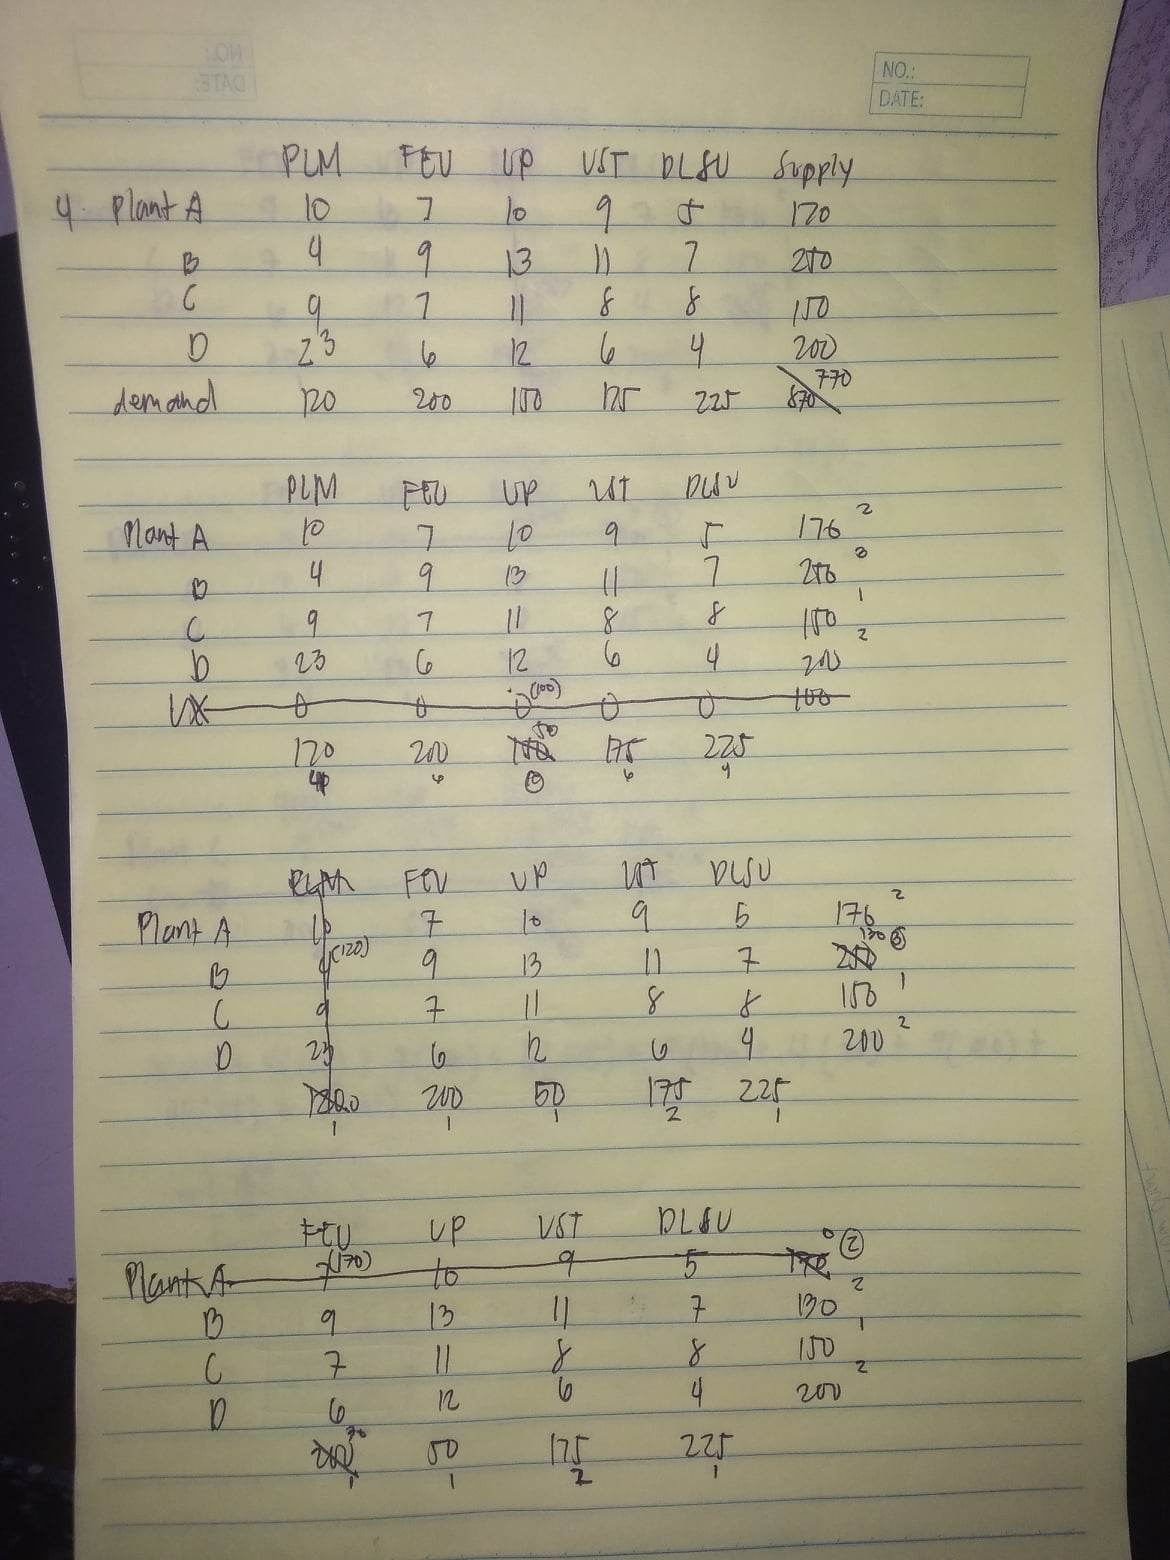 NO.:
DATE:
PLM FEU UP UST DLSU Supply
4. Plant A 10 7 10 9 5 170
B 4 9 13 11 7 250
C 9 7 11 8 8 150
D 23 6 12 6 4 200
770
demand 120 200 150 175 225 870
PLM FEU UP UST DLSU
Plant A 10 7 10 9 5 170 2
B 4 9 13 11 7 250 3
C 9 7 11 8 8 150 1
D 23 6 12 6 4 200 2
UX 0 0 0 (100) 0 0 100
50
120 200 150 175 225
4 6 10 6 4
PLM FEU UP UST DLSU
Plant A 10 7 10 9 5 170 2
B 4 (120) 9 13 11 7 250 130 3
C 9 7 11 8 8 150 1
D 23 6 12 6 4 200 2
120 0 200 50 175 225
1 1 1 2 1
FEU UP UST DLSU
Plant A 7 (170) 10 9 5 170 0 2
B 9 13 11 7 130 2
C 7 11 8 8 150 1
D 6 12 6 4 200 2
30
200 50 175 225
1 1 2 1